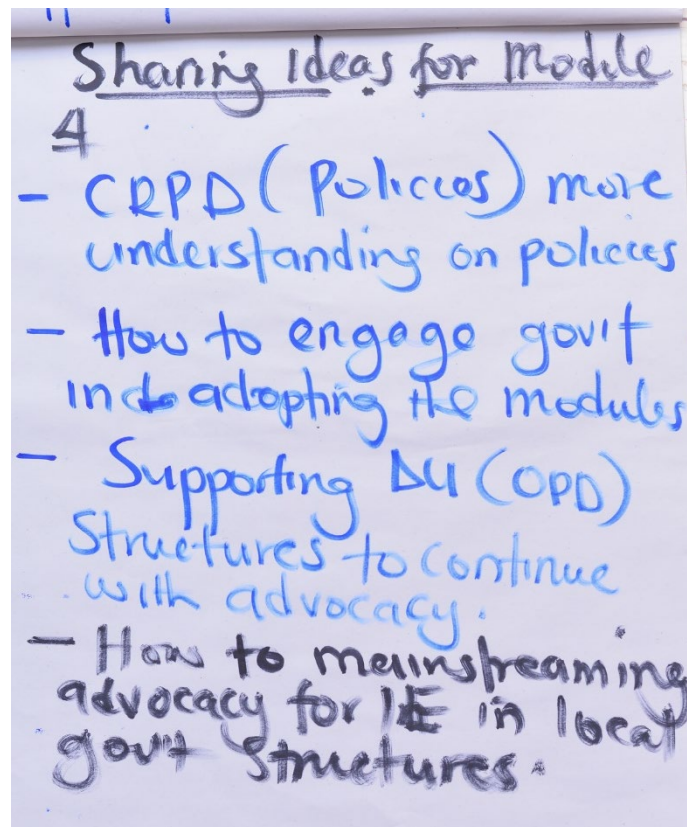 Sharing Ideas for Module
4
- CRPD (Policies) more
understanding on policies
- How to engage gov't
in adopting the modules
- Supporting DU (OPD)
Structures to continue
with advocacy.
- How to mainstreaming
advocacy for IE in local
gov't Structures.